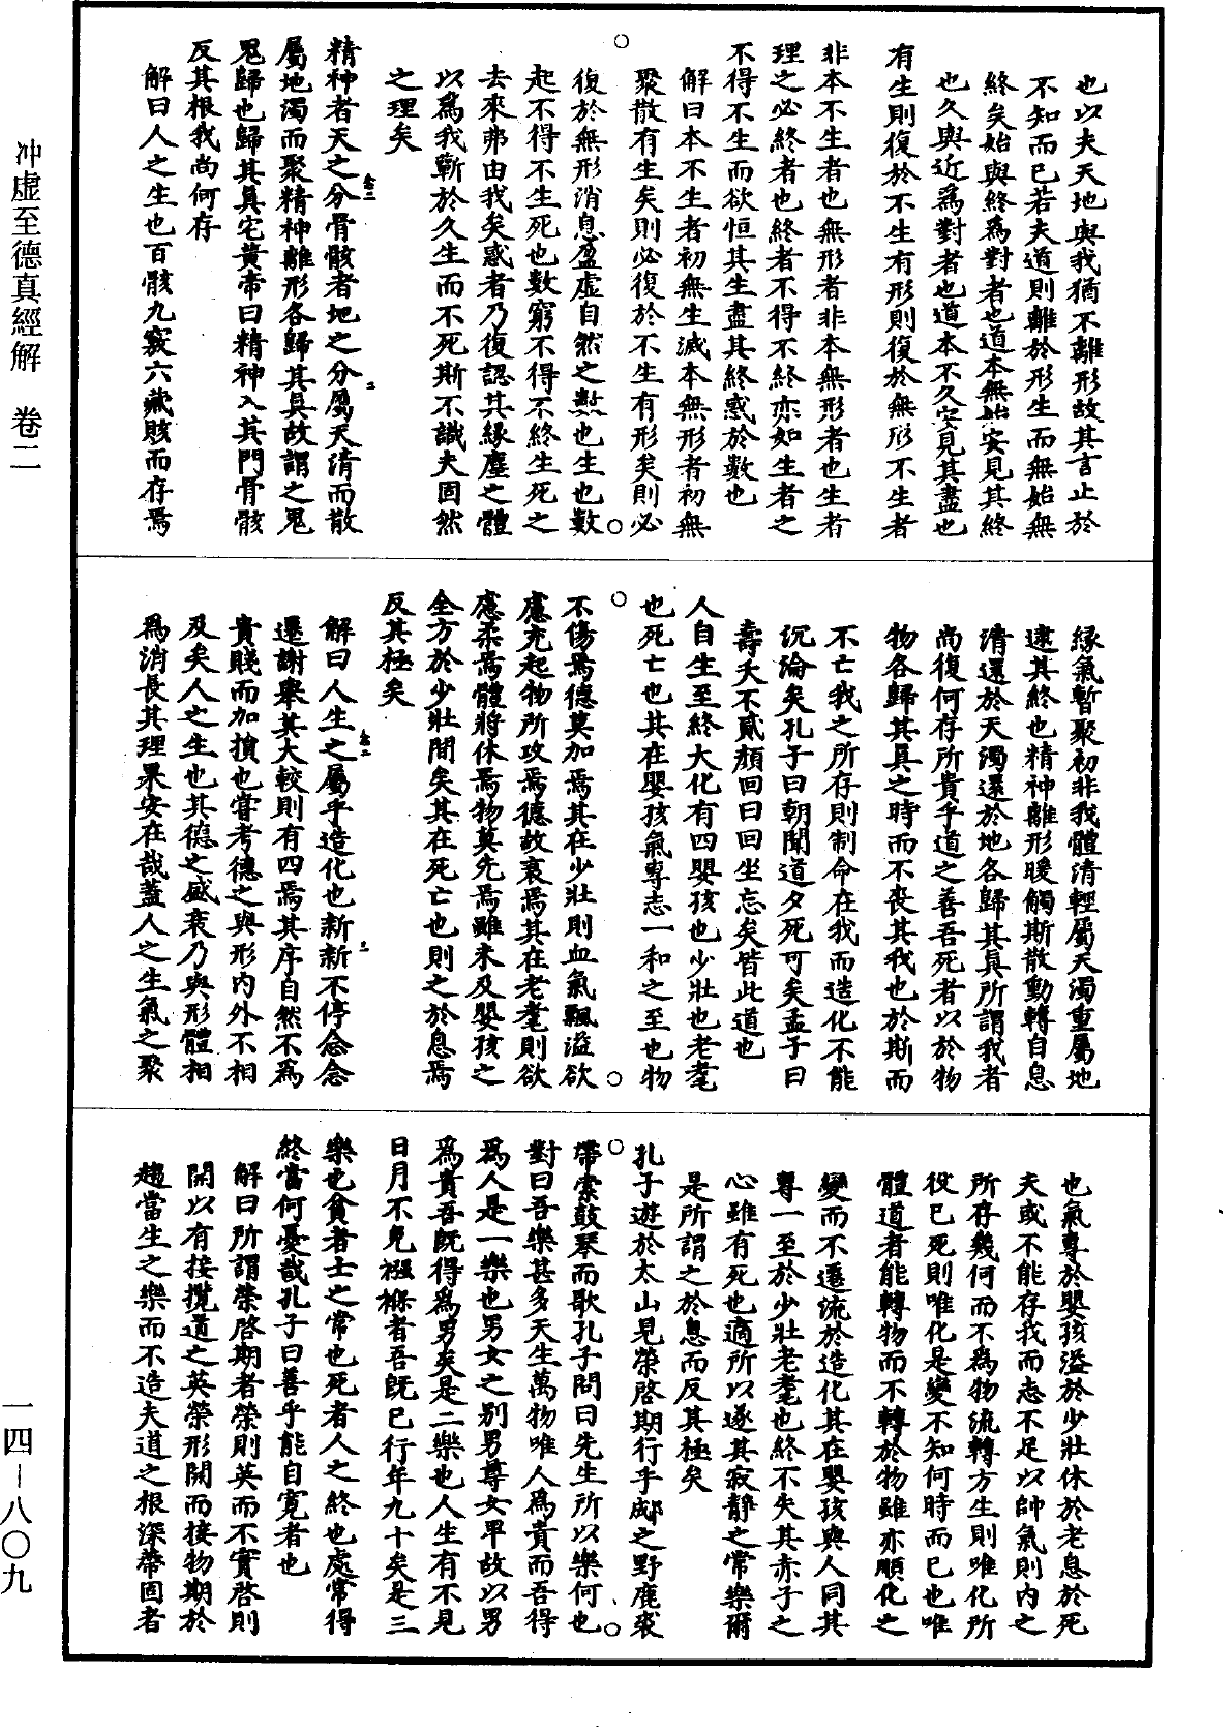 也以夫天地與我猶不離形故其言止於
不知而已若夫道則離於形生而無始無
終矣始與終為對者也道本無始安見其終
也久與近為對者也道本不久安見其盡也
有生則復於不生有形則復於無形不生者
非本不生者也無形者非本無形者也生者
理之必終者也終者不得不終亦如生者之
不得不生而欲恒其生盡其終惑於數也
解曰本不生者初無生滅本無形者初無
聚散有生矣則必復於不生有形矣則必
復於無形消息盈虛自然之數也生也數
起不得不生死也數窮不得不終生死之
去來弗由我矣惑者乃復認其緣塵之體
以為我蘄於久生而不死斯不識夫固然
之理矣
精神者天之分骨骸者地之分屬天清而散
屬地濁而聚精神離形各歸其真故謂之鬼
鬼歸也歸其真宅黃帝曰精神入其門骨骸
反其根我尚何存
解曰人之生也百骸九竅六藏賅而存焉
緣氣暫聚初非我體清輕屬天濁重屬地
逮其終也精神離形暖觸斯散動轉自息
清還於天濁還於地各歸其真所謂我者
尚復何存所貴乎道之善吾死者以於物
物各歸其真之時而不喪其我也於斯而
不亡我之所存則制命在我而造化不能
沉淪矣孔子曰朝聞道夕死可矣孟子曰
壽夭不貳顏回曰回坐忘矣皆此道也
人自生至終大化有四嬰孩也少壯也老耄
也死亡也其在嬰孩氣專志一和之至也物
不傷焉德莫加焉其在少壯則血氣飄溢欲
慮充起物所攻焉德故衰焉其在老耄則欲
慮柔焉體將休焉物莫先焉雖未及嬰孩之
全方於少壯間矣其在死亡也則之於息焉
反其極矣
解曰人生之屬乎造化也新新不停念念
遷謝舉其大較則有四焉其序自然不為
貴賤而加損也嘗考德之與形內外不相
及矣人之生也其德之盛衰乃與形體相
為消長其理果安在哉蓋人之生氣之聚
也氣專於嬰孩溢於少壯休於老息於死
夫或不能存我而志不足以帥氣則內之
所存幾何而不為物流轉方生則唯化所
役已死則唯化是變不知何時而已也唯
體道者能轉物而不轉於物雖亦順化之
變而不遷流於造化其在嬰孩與人同其
專一至於少壯老耄也終不失其赤子之
心雖有死也適所以遂其寂靜之常樂爾
是所謂之於息而反其極矣
孔子遊於太山見榮啓期行乎郕之野鹿裘
帶索鼓琴而歌孔子問曰先生所以樂何也
對曰吾樂甚多天生萬物唯人為貴而吾得
為人是一樂也男女之別男尊女卑故以男
為貴吾既得為男矣是二樂也人生有不見
日月不免襁褓者吾既已行年九十矣是三
樂也貧者士之常也死者人之終也處常得
終當何憂哉孔子曰善乎能自寬者也
解曰所謂榮啓期者榮則英而不實啓則
開以有接攬道之英榮形開而接物期於
趨當生之樂而不造夫道之根深蔕固者
冲虛至德真經解　卷二
一四－八〇九